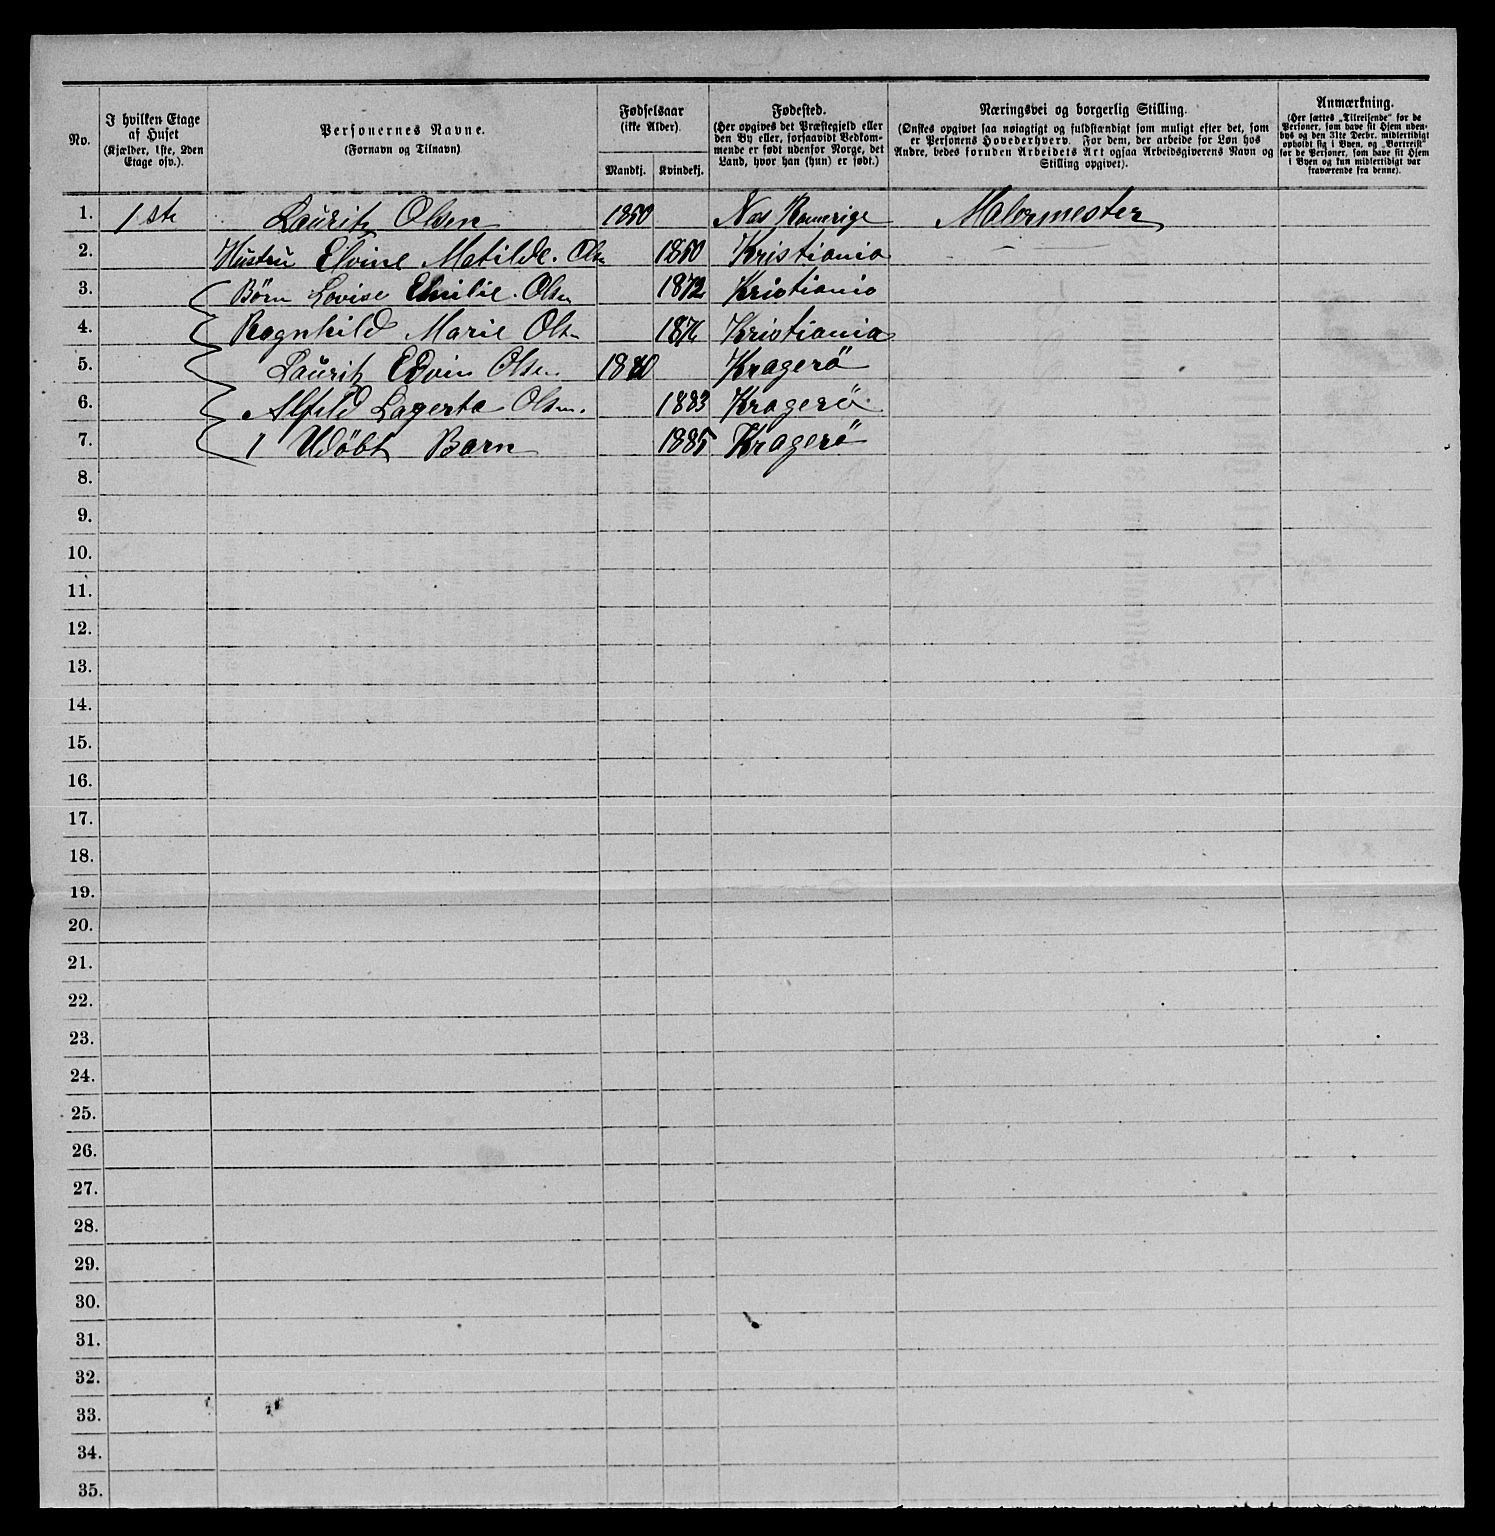 No.
I hvilken Etage af Huset
(Kjælder, 1ste, 2den Etage osv.).
Personernes Navne.
(Fornavn og Tilnavn)
Fødselsaar
(ikke Alder).
Mandkj. Kvindekj.
Fødested.
(Her opgives det Præstegjeld eller
den By eller, forsaavidt Vedkom-
mende er født udenfor Norge, det
Land, hvor han (hun) er født.)
Næringsvei og borgerlig Stilling.
(Ønskes opgivet saa nøiagtigt og fuldstændigt som muligt efter det, som
er Personens Hovederhverv. For dem, der arbeide for Løn hos
Andre, bedes foruden Arbeidets Art ogsaa Arbeidsgiverens Navn og
Stilling opgivet).
Anmærkning.
(Her sættes „Tilreisende" for de
Personer, som have sit Hjem uden-
bys og den 31te Decbr. midlertidigt
opholdt sig i Byen, og „Bortreist"
for de Personer, som have sit Hjem
i Byen og kun midlertidigt var
fraværende fra denne).
1. 1 ste Lauritz Olsen 1850 Nes Romerige Malermester
2. Hustru Elvine Matilde Olsen 1850 Kristiania
3. Børn Lovise Emilie Olsen 1872 Kristiania
4. Ragnhild Marie Olsen 1876 Kristiania
5. Lauritz Edvin Olsen 1880 Kragerö
6. Alfild Lagerta Olsen. 1883 Kragerö
7. 1 Udøbt Barn 1885 Kragerö
8.
9.
10.
11.
12.
13.
14.
15.
16.
17.
18.
19.
20.
21.
22.
23.
24.
25.
26.
27.
28.
29.
30.
31.
32.
33.
34.
35.